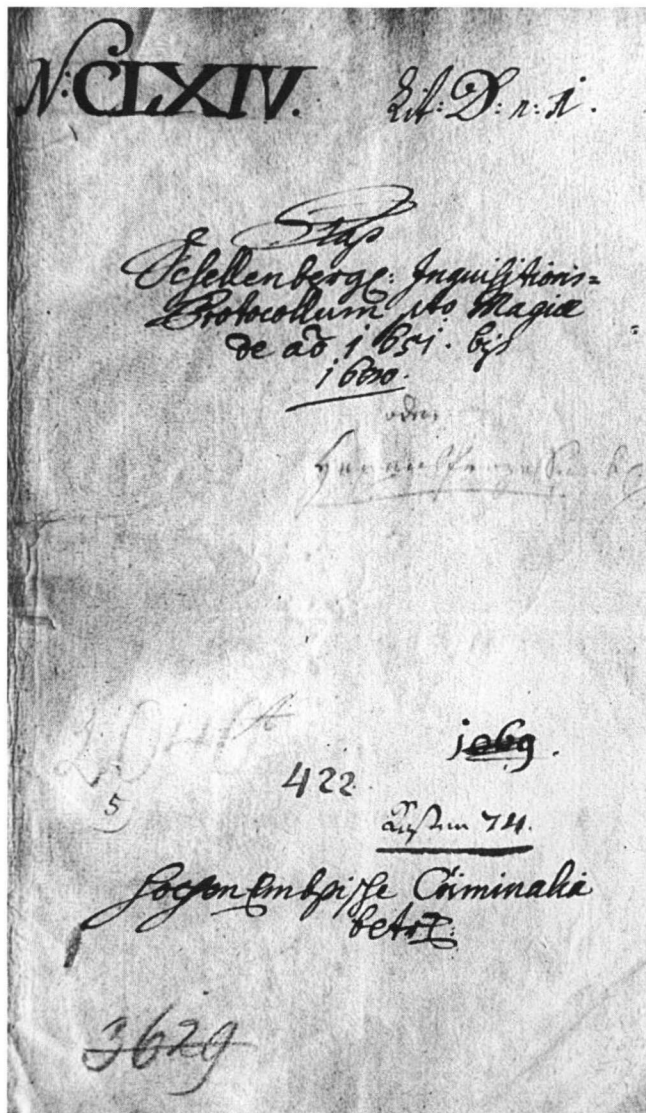 N: CLXIV. Lit: D: n: 1.
Schellenberg: Inquisitions=
Protocollum pto Magiæ
de aõ 1651. biß
oder
422
Kasten 74.
Hochen Embsische Criminalia
betr:
3629
5